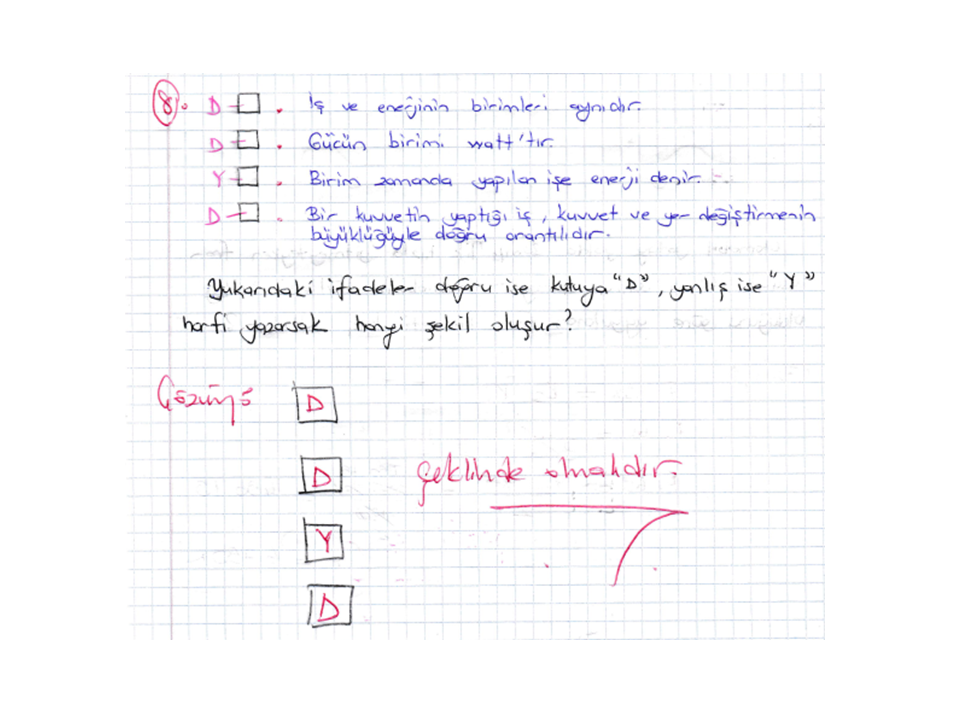 8. D □ . İş ve enerjinin birimleri aynıdır.
D □ . Gücün birimi watt'tır.
Y □ . Birim zamanda yapılan işe enerji denir.
D □ . Bir kuvvetin yaptığı iş, kuvvet ve yer değiştirmenin
büyüklüğüyle doğru orantılıdır.
Yukarıdaki ifadeler doğru ise kutuya "D", yanlış ise "Y"
harfi yazarsak hangi şekil oluşur?
Çözüm: D
D şeklinde olmalıdır.
Y
D